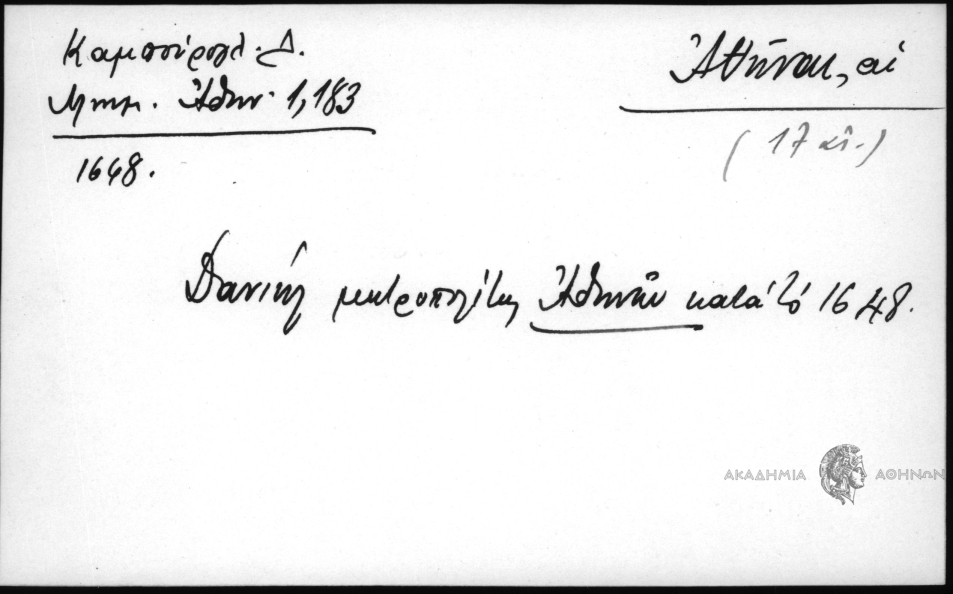 Καμπούρογλ. Δ.
Μνημ. Ἀθην. 1,183
1648.
Ἀθῆναι, αἱ
(17 αἰ.)
Δανιὴλ μητροπολίτης Ἀθηνῶν κατὰ τὸ 1648.
ΑΚΑΔΗΜΙΑ ΑΘΗΝΩΝ